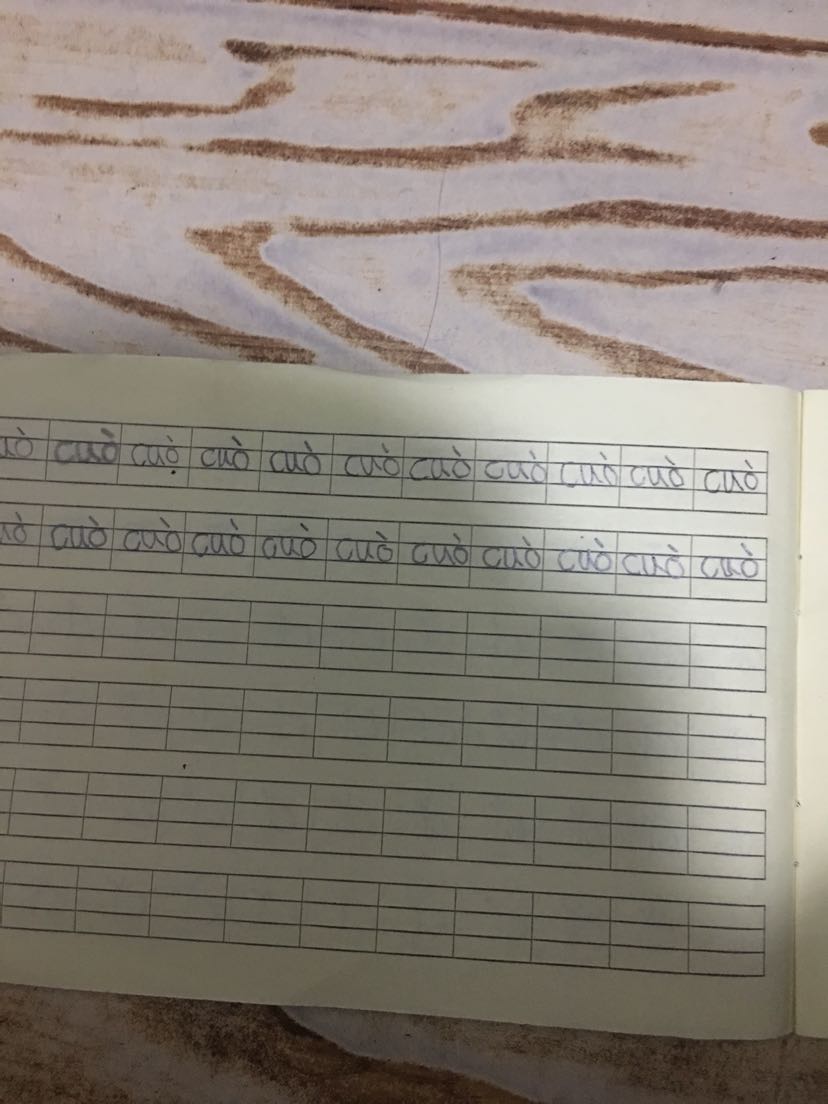 cuò cuò cuò cuò cuò cuò cuò cuò cuò cuò
cuò cuò cuò cuò cuò cuò cuò cuò cuò cuò